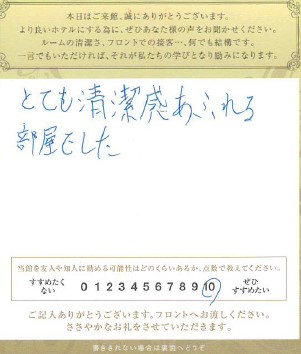 本日はご来館、誠にありがとうございます。
より良いホテルにする為に、ぜひあなた様の声をお聞かせください。
ルームの清潔さ、フロントでの接客…、何でも結構です。
一言でもいただければ、それが私たちの学びとなり励みになります。
とても清潔感あふれる
部屋でした
当館を友人や知人に勧める可能性はどのくらいあるか、点数で教えてください。
すすめたくない 0 1 2 3 4 5 6 7 8 9 10 ぜひすすめたい
ご記入ありがとうございます。フロントへお渡しください。
ささやかなお礼をさせていただきます。
書ききれない場合は裏面へどうぞ